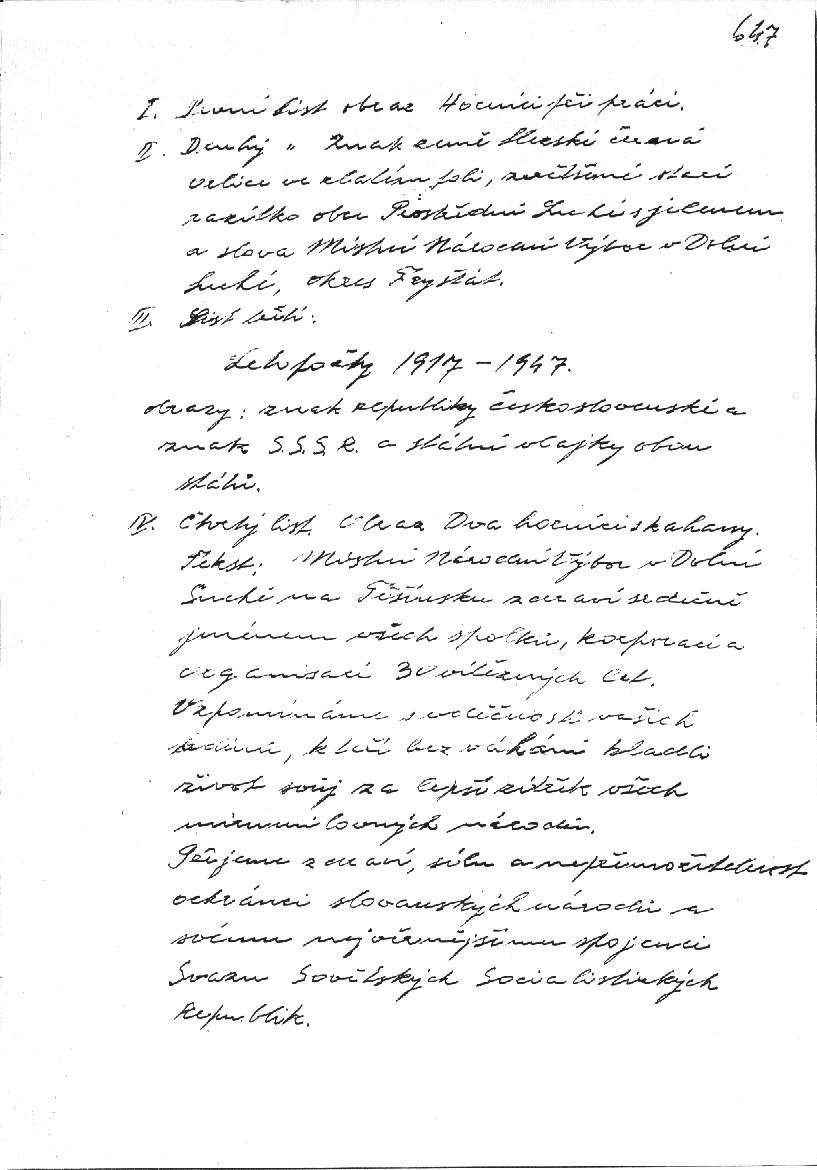 647
I. První list obraz Horníci při práci.
II. Druhý " Znak země Slezské černá
orlice ve zlatém poli, zvětšené staré
razítko obce Prostřední Suché s jelenem
a slova Místní Národní Výbor v Dolní
Suché, okres Fryštát.
III. List třetí:
Letopočty 1917 – 1947.
obrazy: znak republiky československé a
znak S.S.S.R. a státní vlajky obou
států.
IV. Čtvrtý list. Obraz Dva horníci s kahany.
Tekst: Místní Národní Výbor v Dolní
Suché na Těšínsku zdraví srdečně
jménem všech spolků, korporací a
organisací 30 vítězných let.
Vzpomínáme s vděčností vašich
hrdinů, kteří bez váhání kladli
život svůj za lepší zítřek všech
mírumilovných národů.
Přejeme zdraví, sílu a nepřemožitelnost
ochránci slovanských národů a
svému nejvěrnějšímu spojenci
Svazu Sovětských Socialistických
Republik.